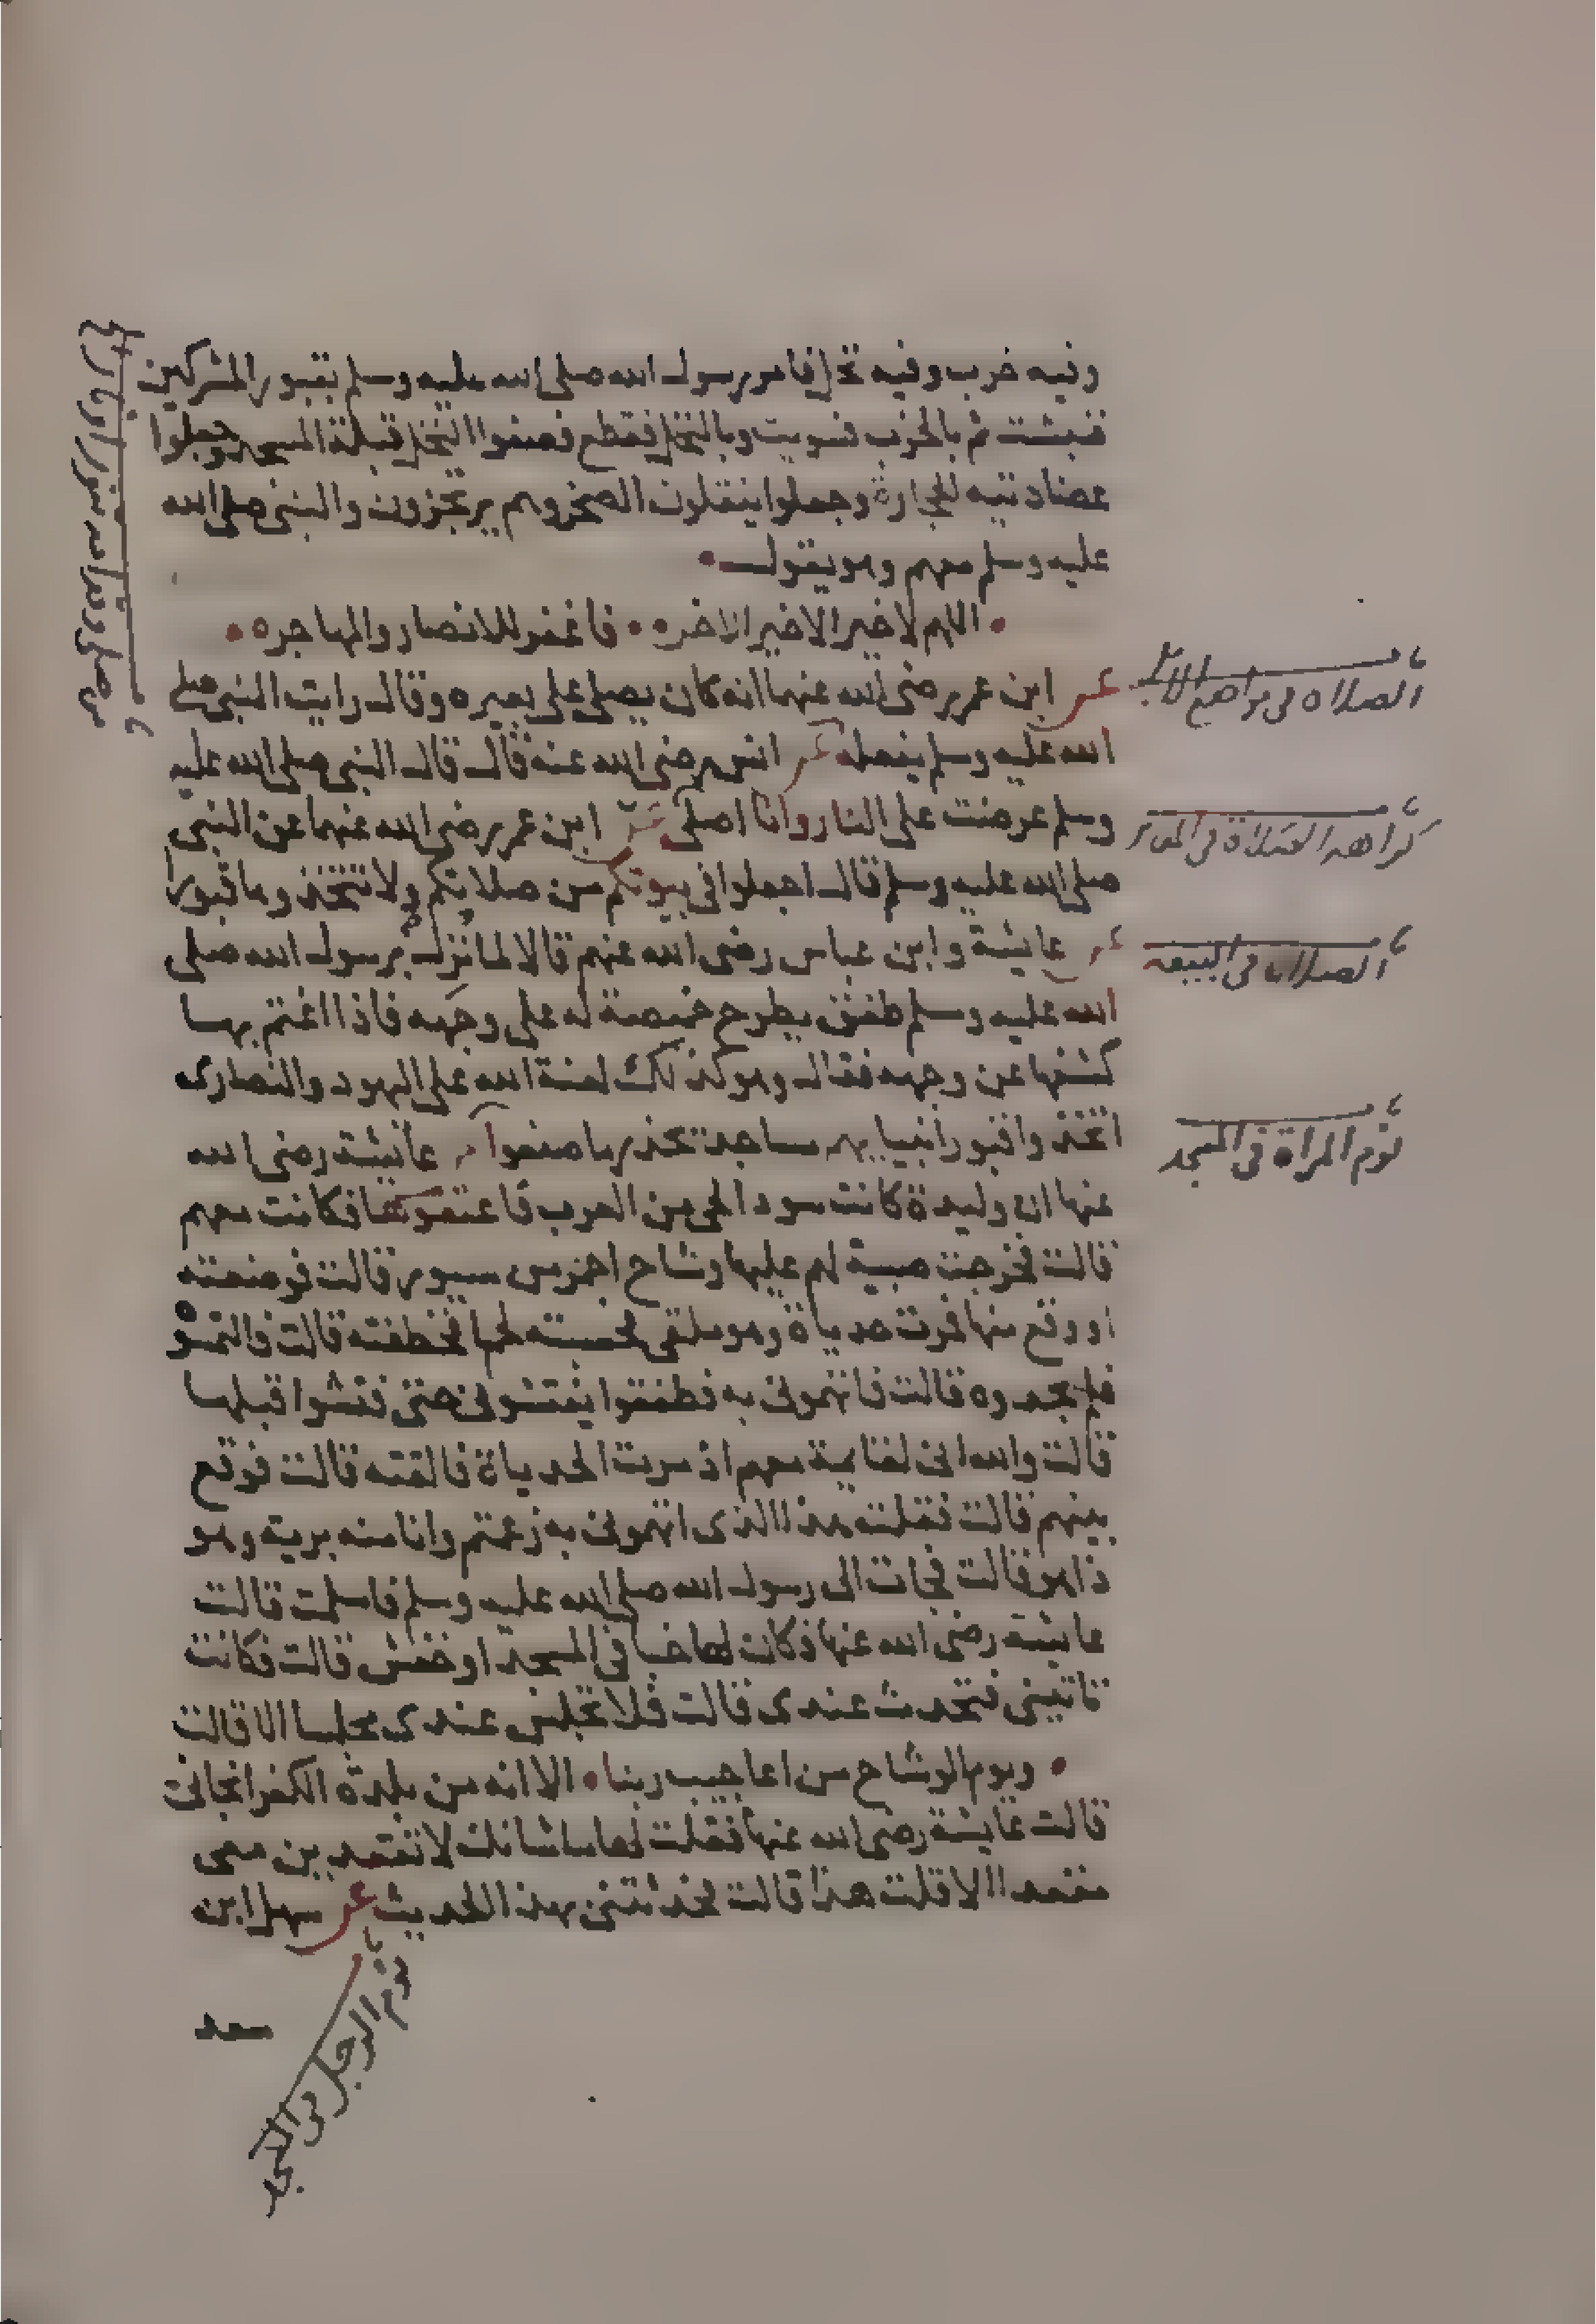 وفيه خرب وفيه نخل فامر رسول الله صلى الله عليه وسلم بقبور المشركين
فنبشت ثم بالخرب فسويت وبالنخل فقطع فصفوا النخل قبلة المسجد وجعلوا
عضادتيه الحجارة وجعلوا ينقلون الصخر وهم يرتجزون والنبي صلى الله
عليه وسلم معهم وهو يقول
اللهم لا خير الا خير الاخره فاغفر للانصار والمهاجره
عن ابن عمر رضى الله عنهما انه كان يصلى على بعيره وقال رايت النبي صلى
الله عليه وسلم يفعله عن انس رضى الله عنه قال قال النبي صلى الله عليه
وسلم عرضت على النار وانا اصلى عن ابن عمر رضى الله عنهما عن النبي
صلى الله عليه وسلم قال اجعلوا في بيوتكم من صلاتكم ولا تتخذوها قبورا
عن عايشة وابن عباس رضى الله عنهم قالا لما نزل برسول الله صلى
الله عليه وسلم طفق يطرح خميصة له على وجهه فاذا اغتم بها
كشفها عن وجهه فقال وهو كذلك لعنة الله على اليهود والنصارى
اتخذوا قبور انبيايهم مساجد تحذر ما صنعوا عن عائشة رضى الله
عنها ان وليدة كانت سودا لحى من العرب فاعتقوها فكانت معهم
قالت فخرجت صبية لهم عليها وشاح احمر من سيور قالت فوضعته
او وقع منها فمرت حدياة وهو ملقى فحسبته لحما فخطفته قالت فالتمسوه
فلم يجدوه قالت فاتهمونى به فطفقوا يفتشونى حتى فتشوا قبلها
قالت والله انى لقايمة معهم اذ مرت الحدياة فالقته قالت فوقع
بينهم قالت فقلت هذا الذى اتهمونى به زعمتم وانا منه برية وهو
ذا هو قالت فجات الى رسول الله صلى الله عليه وسلم فاسلمت قالت
عايشة رضى الله عنها فكان لها خبا في المسجد او حفش قالت فكانت
تاتينى فتحدث عندى قالت فلا تجلس عندى مجلسا الا قالت
ويوم الوشاح من اعاجيب ربنا الا انه من بلدة الكفر انجانى
قالت عايشة رضى الله عنها فقلت لها ما شانك لا تقعدين معى
مقعدا الا قلت هذا قالت فحدثتنى بهذا الحديث عن سهل ابن
سعد
باب
الصلاة في مواضع الابل
باب
من صلى وقدامه تنور او نار
باب
كراهه الصلاة في المقابر
باب
الصلاة في البيعه
باب
نوم المراة في المسجد
باب
نوم الرجل في المسجد